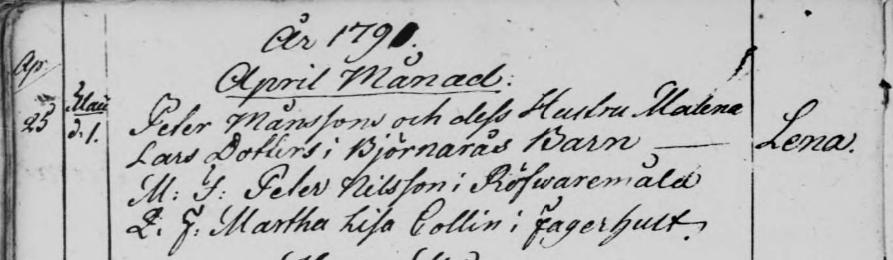 År 1790.
April Månad.
Ap. 25
Maii d. 1.
Peter Månssons och dess Hustru Malena
Lars Dotters i Björnarås Barn — Lena.
M: F: Peter Nilsson i Röfwaremåla
Q: F: Martha Lisa Collin i Fagerhult.